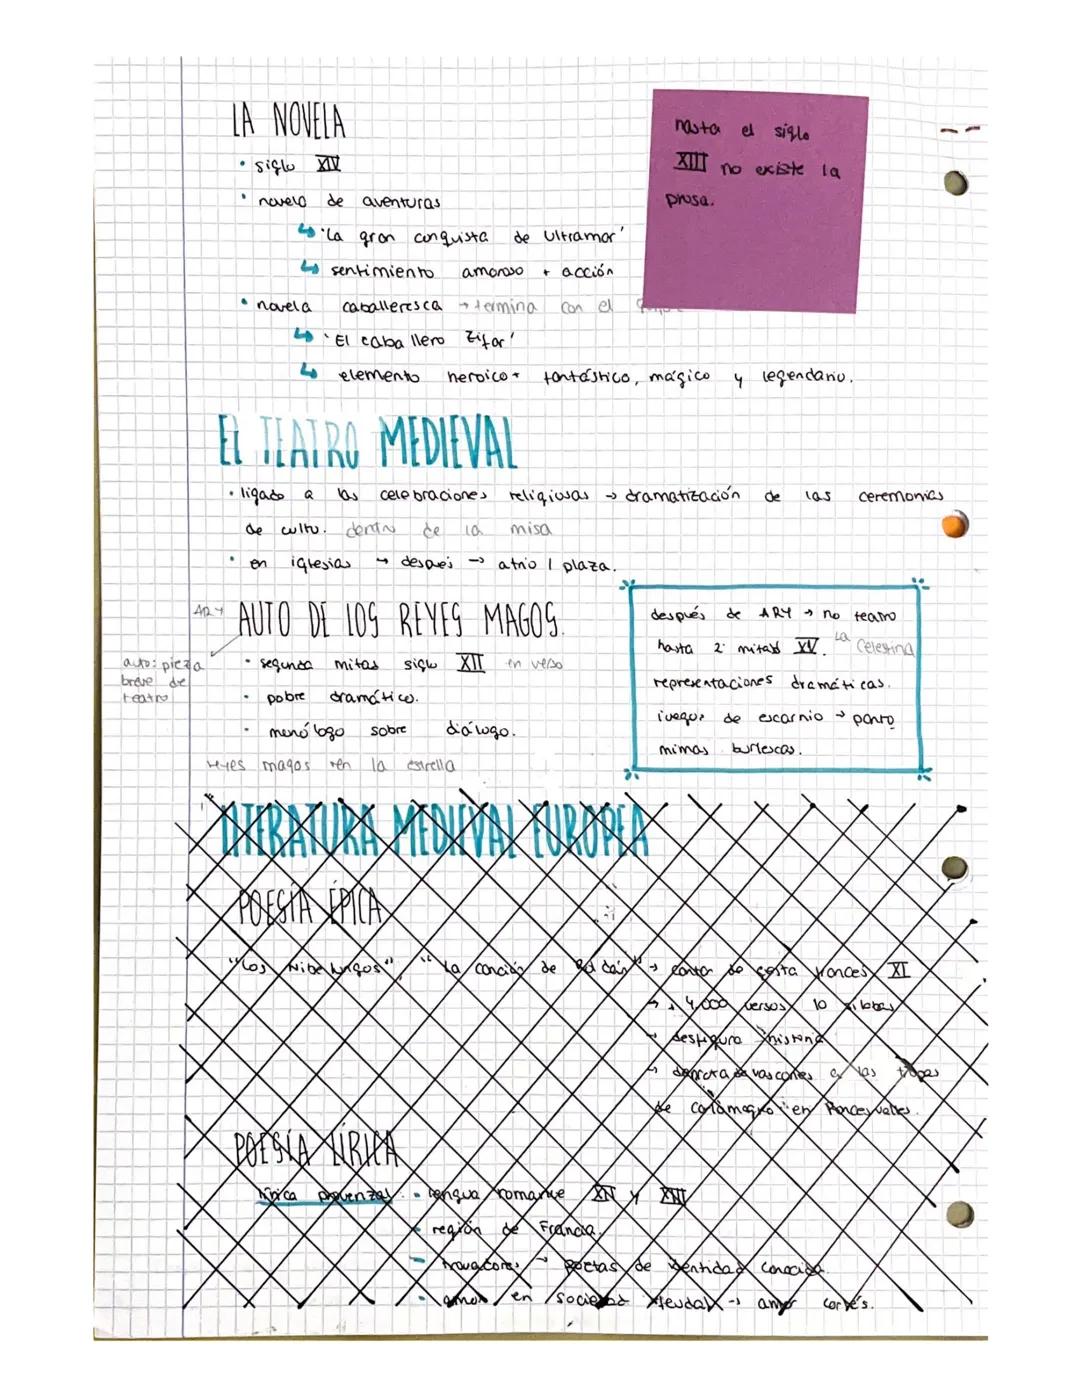 LA NOVELA
• siglo XIV
• novela de aventuras
↳ 'La gran conquista de Ultramar'
↳ sentimiento amoroso + acción
• novela caballeresca → termina con el
↳ 'El caballero Zifar'
↳ elemento heroico + fantástico, mágico y legendario.
hasta el siglo
XIII no existe la
prosa.
EL TEATRO MEDIEVAL
• ligado a las celebraciones religiosas → dramatización de las ceremonias
de culto. dentro de la misa
• en iglesias → después → atrio / plaza.
ARM
AUTO DE LOS REYES MAGOS.
auto: pieza
breve de
teatro
• segunda mitad siglo XII en verso
• pobre dramático.
• monólogo sobre diálogo.
reyes magos ven la estrella
después de ARM → no teatro
hasta 2ª mitad XV. La Celestina
representaciones dramáticas.
juegos de escarnio → panto
mimas burlescas.
LITERATURA MEDIEVAL EUROPEA
POESÍA ÉPICA
"Los Nibelungos", "La canción de Roldán" → cantar de gesta francés XI
→ 4.000 versos 10 sílabas
→ desfigura historia
↳ derrota de vascones a las tropas
de Carlomagno en Roncesvalles.
POESÍA LÍRICA
lírica provenzal: • lengua romance XII y XIII
• región de Francia.
• trovadores → poetas de identidad conocida.
• amor en sociedad feudal → amor cortés.